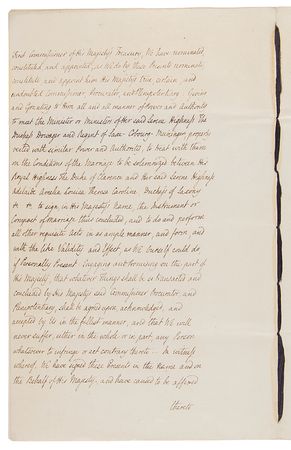 Lord Commissioner of His Majesty's Treasury, We have nominated,
constituted and appointed, as We do by these Presents nominate,
constitute and appoint him His Majesty's true certain and
undoubted Commissioner, Procurator, and Plenipotentiary. Giving
and granting to Him all and all manner of Power and Authority
to meet the Minister or Ministers of Her said Serene Highness The
Duchess Dowager and Regent of Saxe Cobourg Meiningen properly
vested with similar Power and Authority, to treat with them
on the Conditions of the Marriage to be solemnized between His
Royal Highness The Duke of Clarence and Her said Serene Highness
Adelaide Amelia Louisa Theresa Caroline Duchess of Saxony
&c &c to sign, in His Majesty's Name, the Instrument or
Compact of Marriage thus concluded, and to do and perform
all other requisite Acts in as ample manner, and form and
with the like Validity and Effect, as We Ourself could do,
if Personally Present: Engaging and promising on the part of
His Majesty, that whatever things shall be so transacted and
concluded by His Majesty's said Commissioner Procurator and
Plenipotentiary, shall be agreed upon, acknowledged, and
accepted by Us in the fullest manner, and that We will
never suffer, either in the whole or in part, any Person
whatsoever to infringe or act contrary thereto. In witness
whereof, We have signed these Presents in the Name and on
the Behalf of His Majesty, and have caused to be affixed
thereto